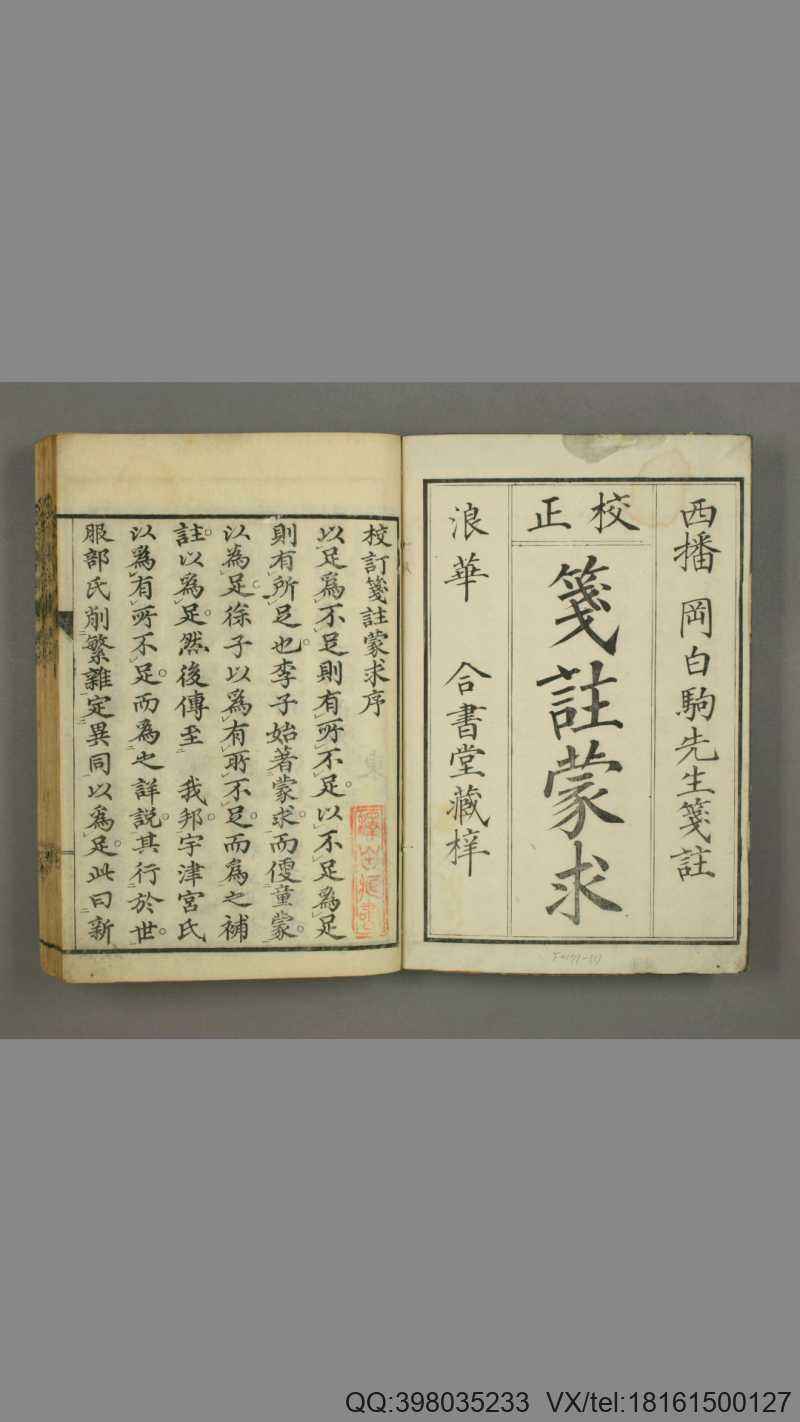 西播 岡白駒先生箋註
校正
箋註蒙求
浪華 合書堂藏梓
校訂箋註蒙求序
以足爲不足則有所不足。以不足爲足
則有所足也。李子始著蒙求。而便童蒙。
以為足。徐子以爲有所不足而爲之補
註。以爲足。然後傳至 我邦。宇津宮氏
以爲有所不足。而爲之詳説。其行於世。
服部氏削繁雜定異同以爲足。此曰新
QQ:398035233 VX/tel:18161500127